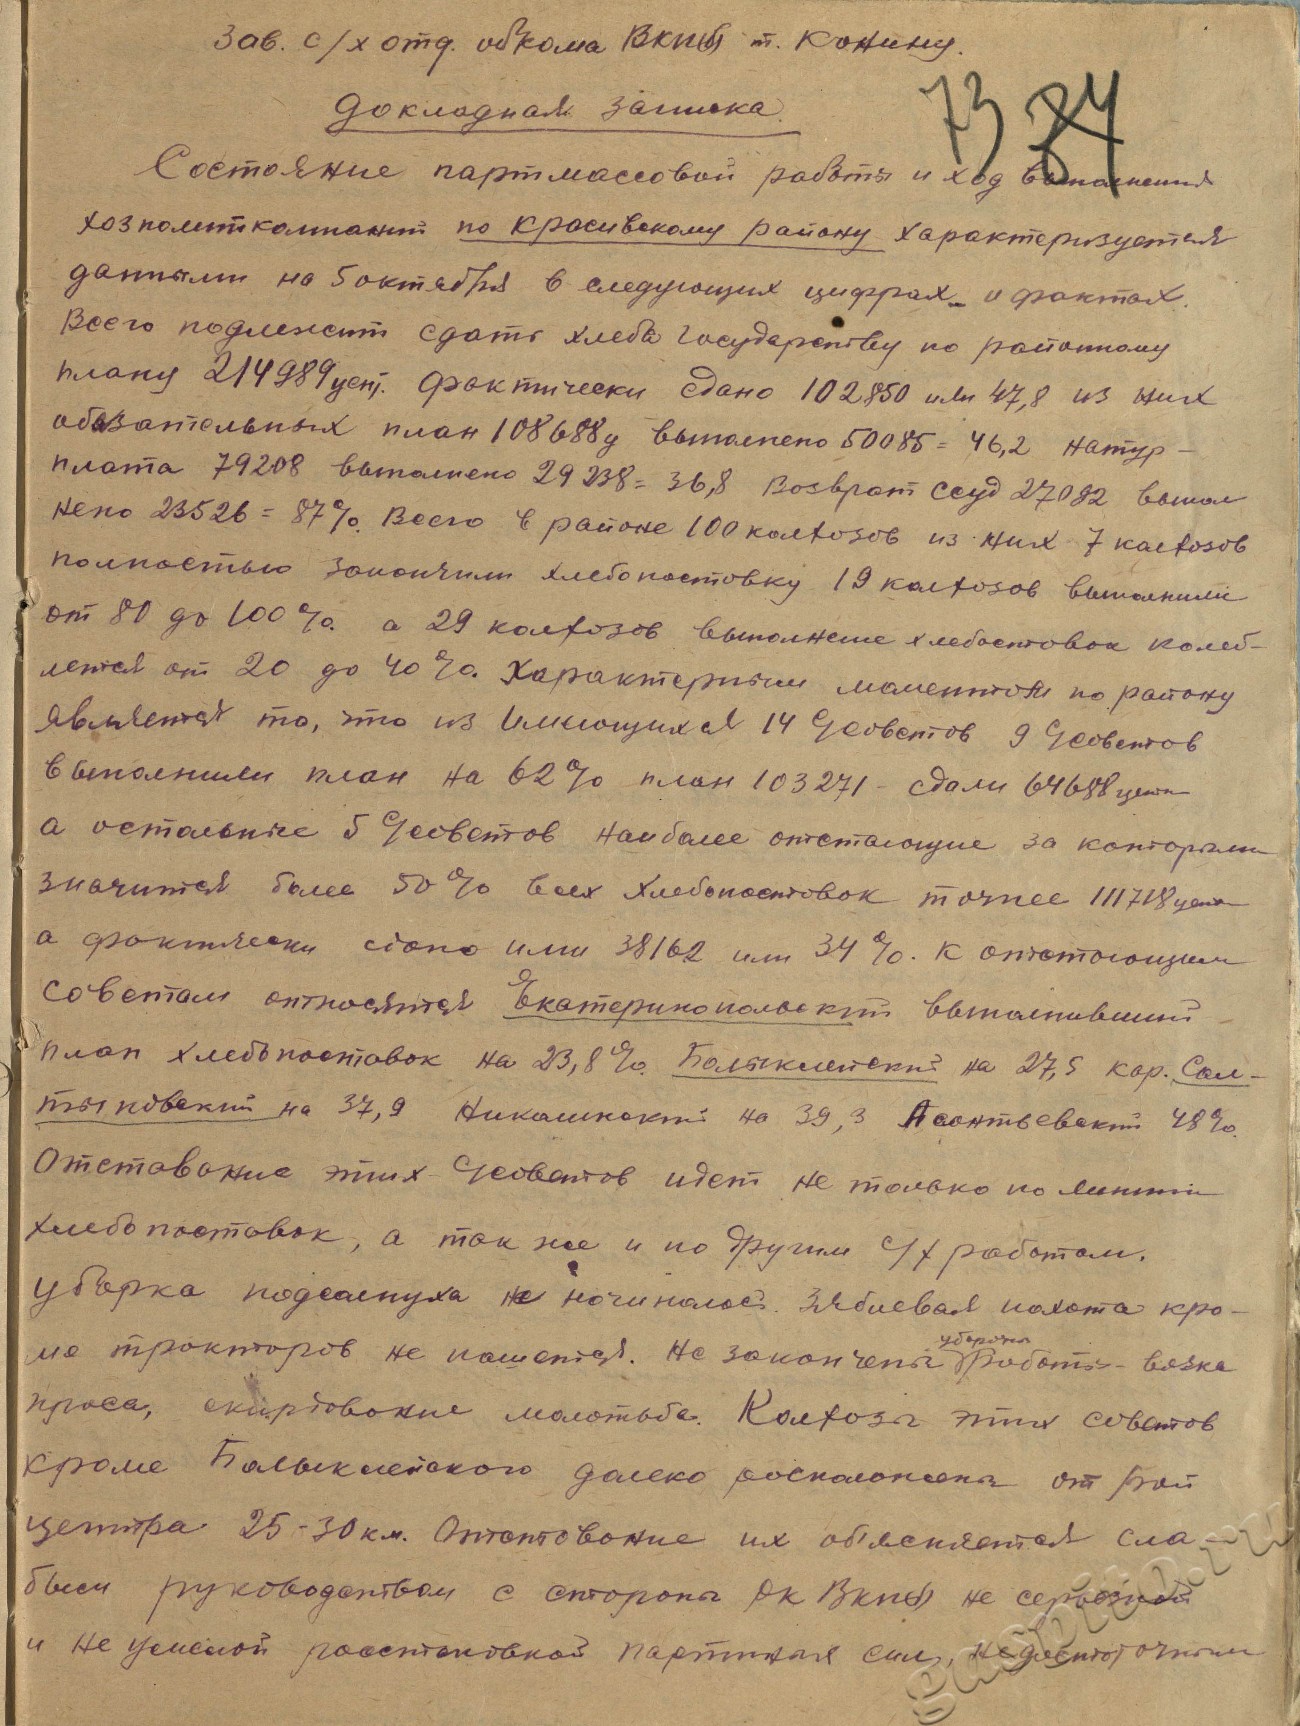 Зав. с/х отд. обкома ВКП(б) т. Конину.
73 84
Докладная записка.
Состояние партмассовой работы и ход выполнения
хозполиткомпаний по Красивскому району характеризуется
данными на 5 октября в следующих цифрах и фактах.
Всего подлежит сдать хлеба государству по районному
плану 214989 цент. фактически сдано 102850 или 47,8 из них
обязательных план 108688 ц выполнено 50085 = 46,2 натур-
плата 79208 выполнено 29238 = 36,8 Возврат ссуд 27092 выпол
нено 23526 = 87%. Всего в районе 100 колхозов из них 7 колхозов
полностью закончили хлебопоставку 19 колхозов выполнили
от 80 до 100%. а 29 колхозов выполнение хлебоставок колеб-
лется от 20 до 40%. Характерным моментом по району
является то, что из имеющихся 14 с/советов 9 с/советов
выполнили план на 62% план 103271 - сдали 64688 цент
а остальные 5 с/советов наиболее отстающие за которыми
значится более 50% всех хлебопоставок точнее 111718 цент
а фактически сдано ими 38162 или 34%. К отстающим
советам относятся Екатеринопольский выполнивший
план хлебопоставок на 23,8%. Балыклейский на 27,5 кор. Сал-
тыковский на 37,9 Никашкский на 39,3 Леонтьевский 48%.
Отставание этих с/советов идет не только по линии
хлебопоставок, а так же и по другим с/х работам.
Уборка подсолнуха не начиналась. Зяблевая пахота кро-
ме тракторов не пашется. Не закончены уборочн работы - вязка
проса, скирдование молотьба. Колхозы этих советов
кроме Балыклейского далеко расположены от рай
центра 25-30 км. Отставание их объясняется сла-
бым руководством с стороны РК ВКП(б) не серьезной
и не умелой расстановкой партийных сил, недостаточным
gaspito.ru